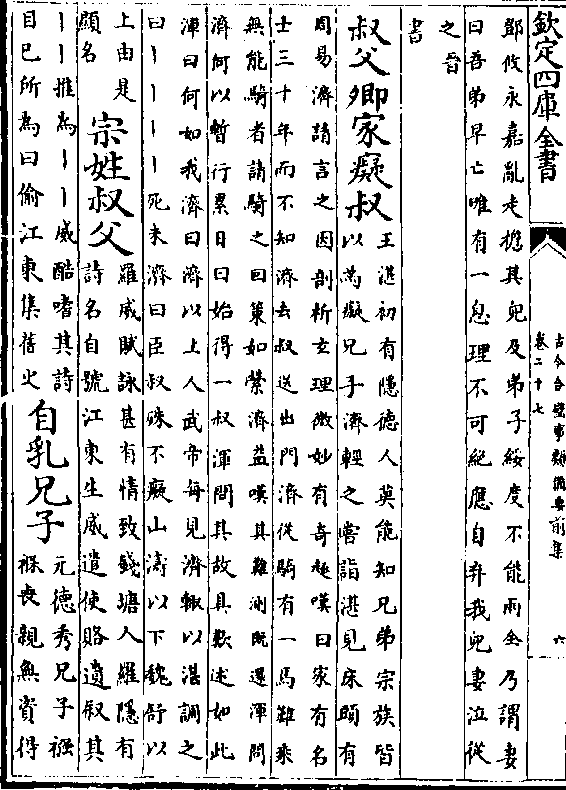 欽定四庫全書
古今合璧事類備要前集
卷二十七
六
鄧攸永嘉亂走擔其兒及弟子綏度不能兩全乃謂妻
曰吾弟早亡唯有一息理不可絶應自弃我兒妻泣從
之晉
書
叔父卿家癡叔
王湛初有隱德人莫能知兄弟宗族皆
以為癡兄子濟輕之嘗詣湛見床頭有
周易濟請言之因剖析玄理微妙有奇趣嘆曰家有名
士三十年而不知濟去叔送出門濟從騎有一馬難乘
無能騎者請騎之回策如縈濟益嘆其難測既還渾問
濟何以暫行累日曰始得一叔渾問其故具歎述如此
渾曰何如我濟曰濟以上人武帝每見濟輒以湛調之
曰丨丨丨丨死未濟曰臣叔殊不癡山濤以下魏舒以
上由是
顯名
宗姓叔父
羅威賦詠甚有情致錢塘人羅隱有
詩名自號江東生威遣使賂遺叙其
丨丨推為丨丨威酷嗜其詩
目已所為曰偷江東集舊史
自乳兄子
元德秀兄子襁
褓喪親無資得